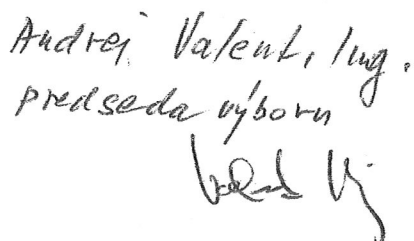 Andrej Valent, Ing.
predseda výboru